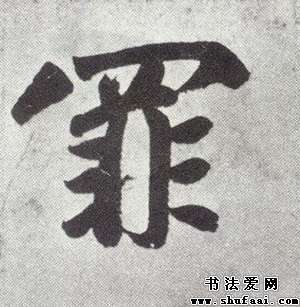 罪
书法爱网
www.shufaai.com